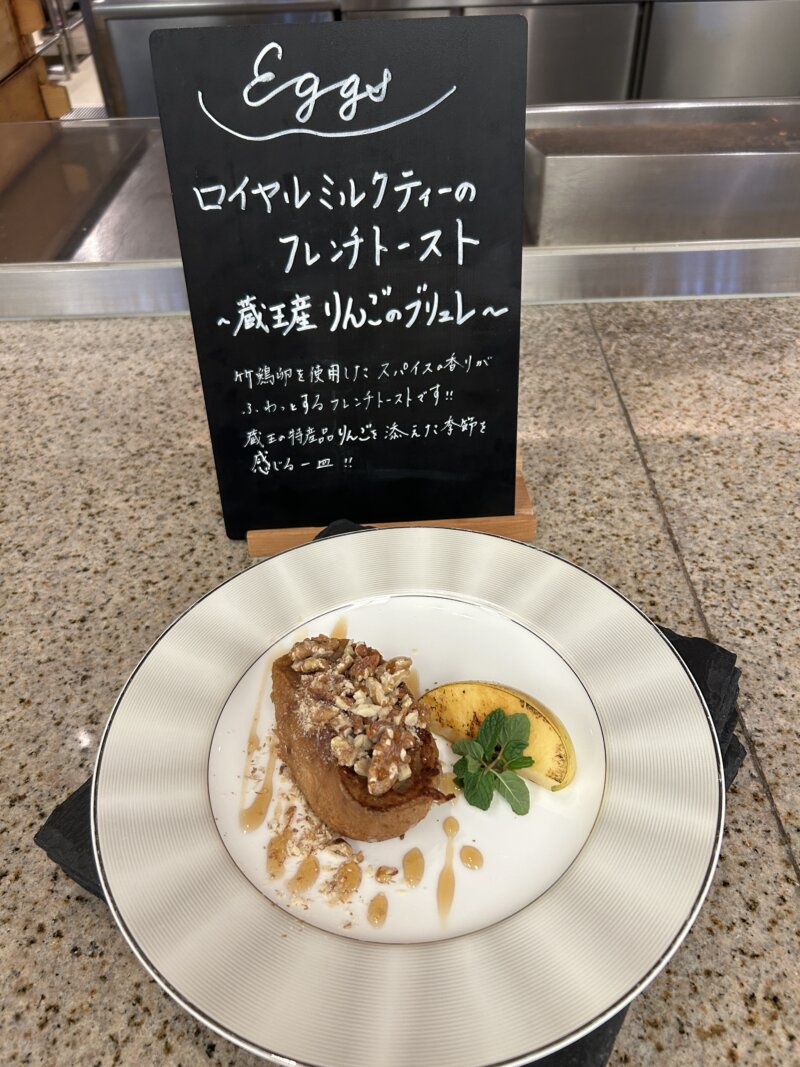 Eggs
ロイヤルミルクティーの
フレンチトースト
~蔵王産りんごのブリュレ~
竹鶏卵を使用したスパイスの香りが
ふわっとするフレンチトーストです!!
蔵王の特産品りんごを添えた季節を
感じる一皿!!